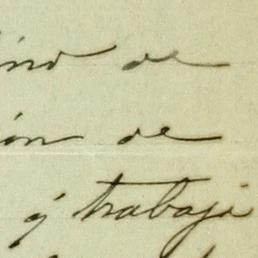 ino de
ión de
y trabaja